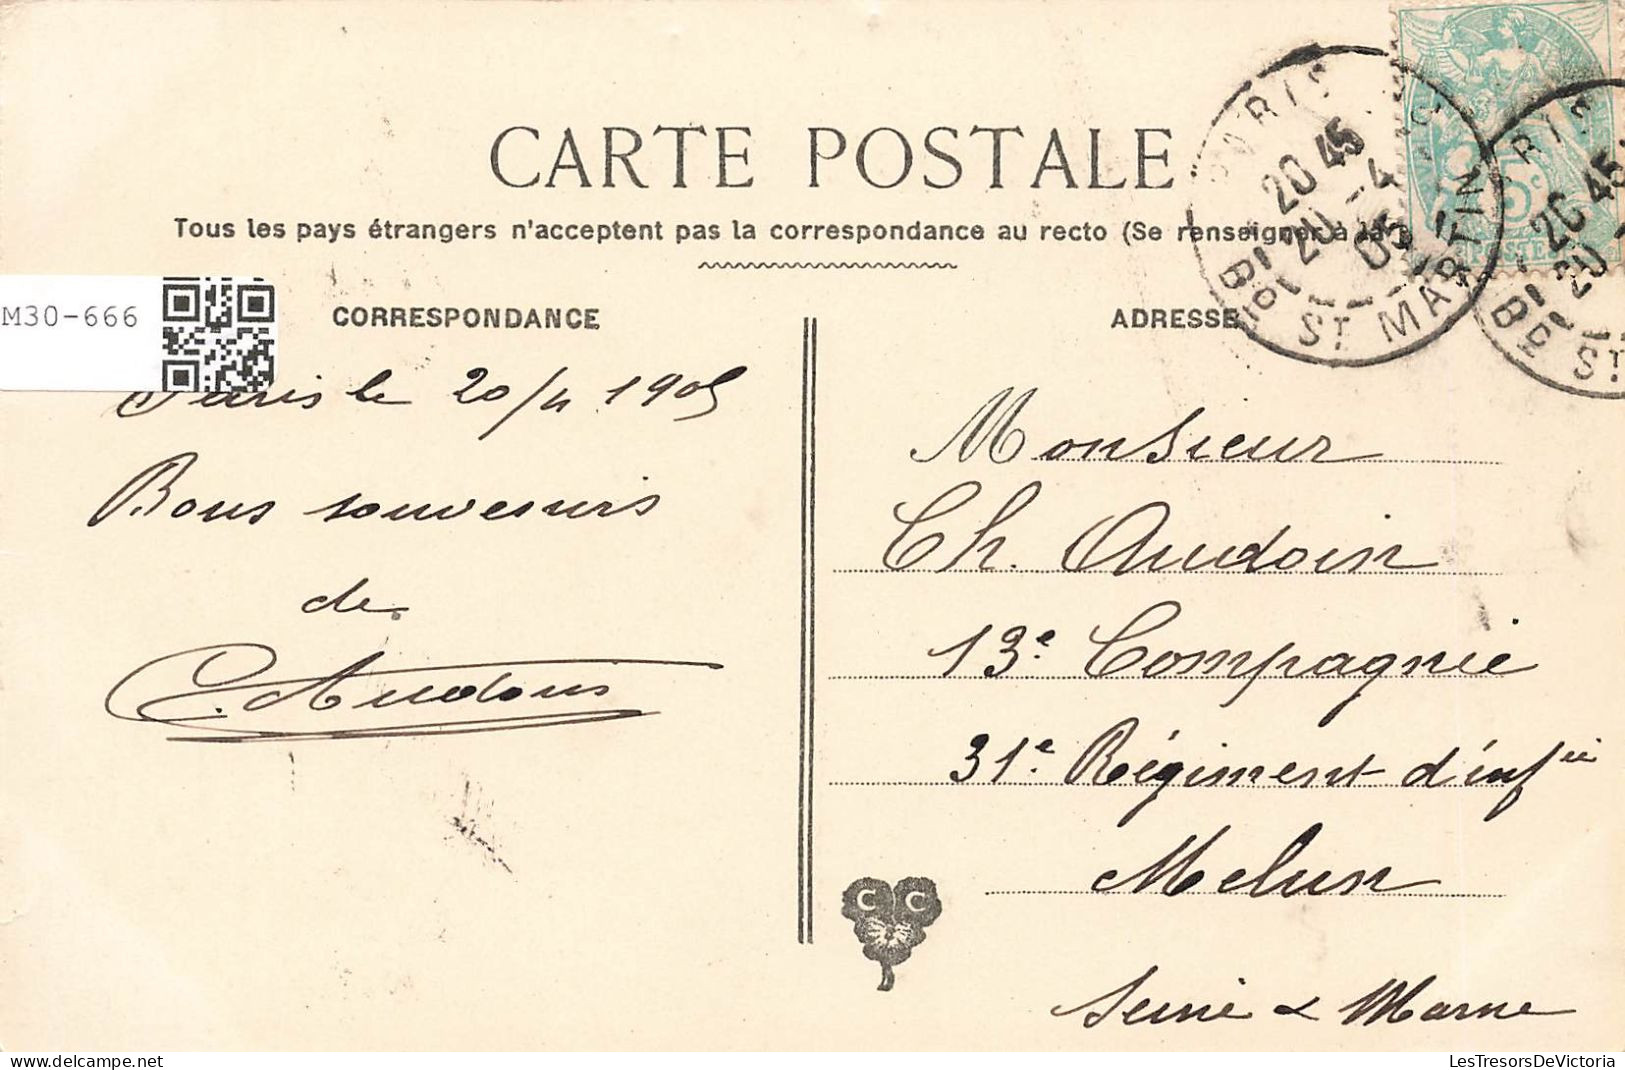 CARTE POSTALE
Tous les pays étrangers n'acceptent pas la correspondance au recto (Se renseigner à la
M30-666
CORRESPONDANCE
ADRESSE
PARIS
20 45
20 - 4
05
BD ST MARTIN
RIS
20 45
20
BD ST
5c
POSTES
Paris le 20/4 1905
Bons souvenirs
de
C. Audoin
Monsieur
Ch. Audoin
13e Compagnie
31e Régiment d'infie
Melun
Seine & Marne
C C
LesTresorsDeVictoria